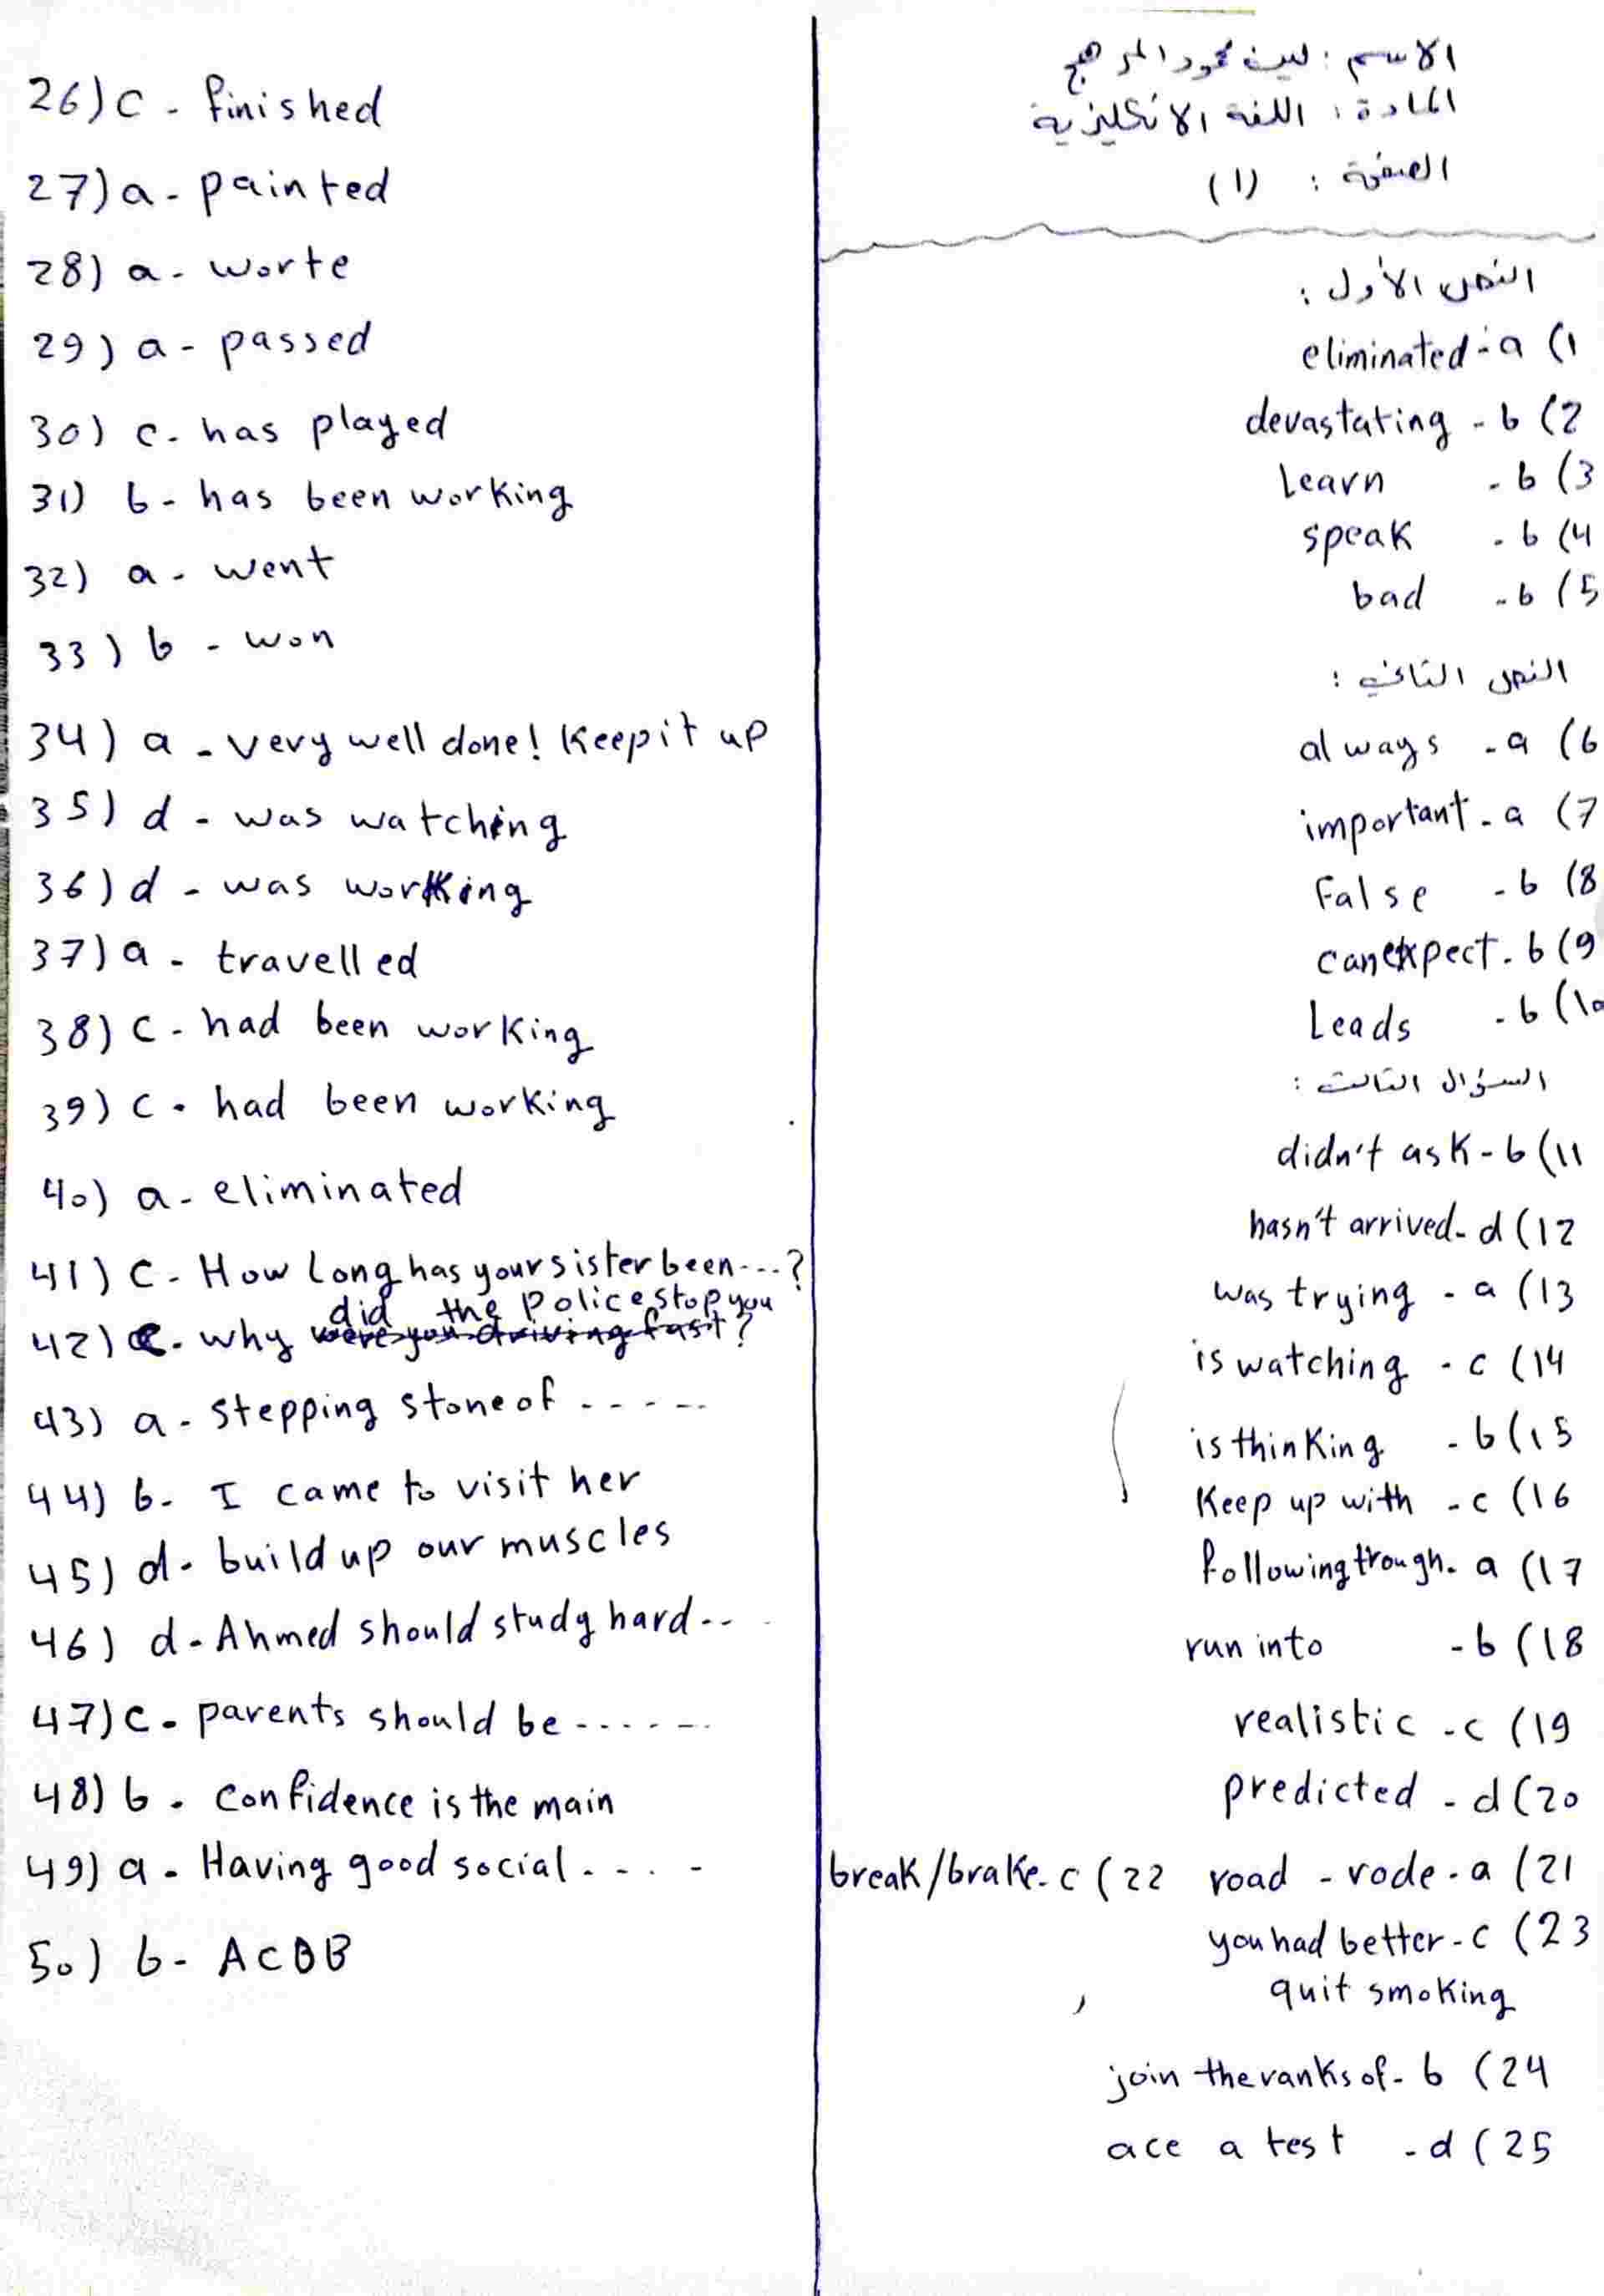 الاسم : ليث محمود المرهج
المادة : اللغة الانكليزية
الصفحة : (1)
النص الأول :
1) a - eliminated
2) b - devastating
3) b - Learn
4) b - speak
5) b - bad
النص الثاني :
6) a - always
7) a - important
8) b - False
9) b - can expect
10) b - Leads
السؤال الثالث :
11) b - didn't ask
12) d - hasn't arrived
13) a - was trying
14) c - is watching
15) b - is thinking
16) c - Keep up with
17) a - following trough
18) b - run into
19) c - realistic
20) d - predicted
21) a - road - rode
22) c - break/brake
23) c - you had better
quit smoking
24) b - join the ranks of
25) d - ace a test
26) c - finished
27) a - painted
28) a - worte
29) a - passed
30) c - has played
31) b - has been working
32) a - went
33) b - won
34) a - very well done! Keep it up
35) d - was watching
36) d - was working
37) a - travelled
38) c - had been working
39) c - had been working
40) a - eliminated
41) c - How Long has your sister been ---?
42) c - why did the police stop you ?
43) a - stepping stone of - - - - -
44) b - I came to visit her
45) d - build up our muscles
46) d - Ahmed should study hard - -
47) c - parents should be - - - - - -
48) b - confidence is the main
49) a - Having good social - - - -
50) b - ACDB